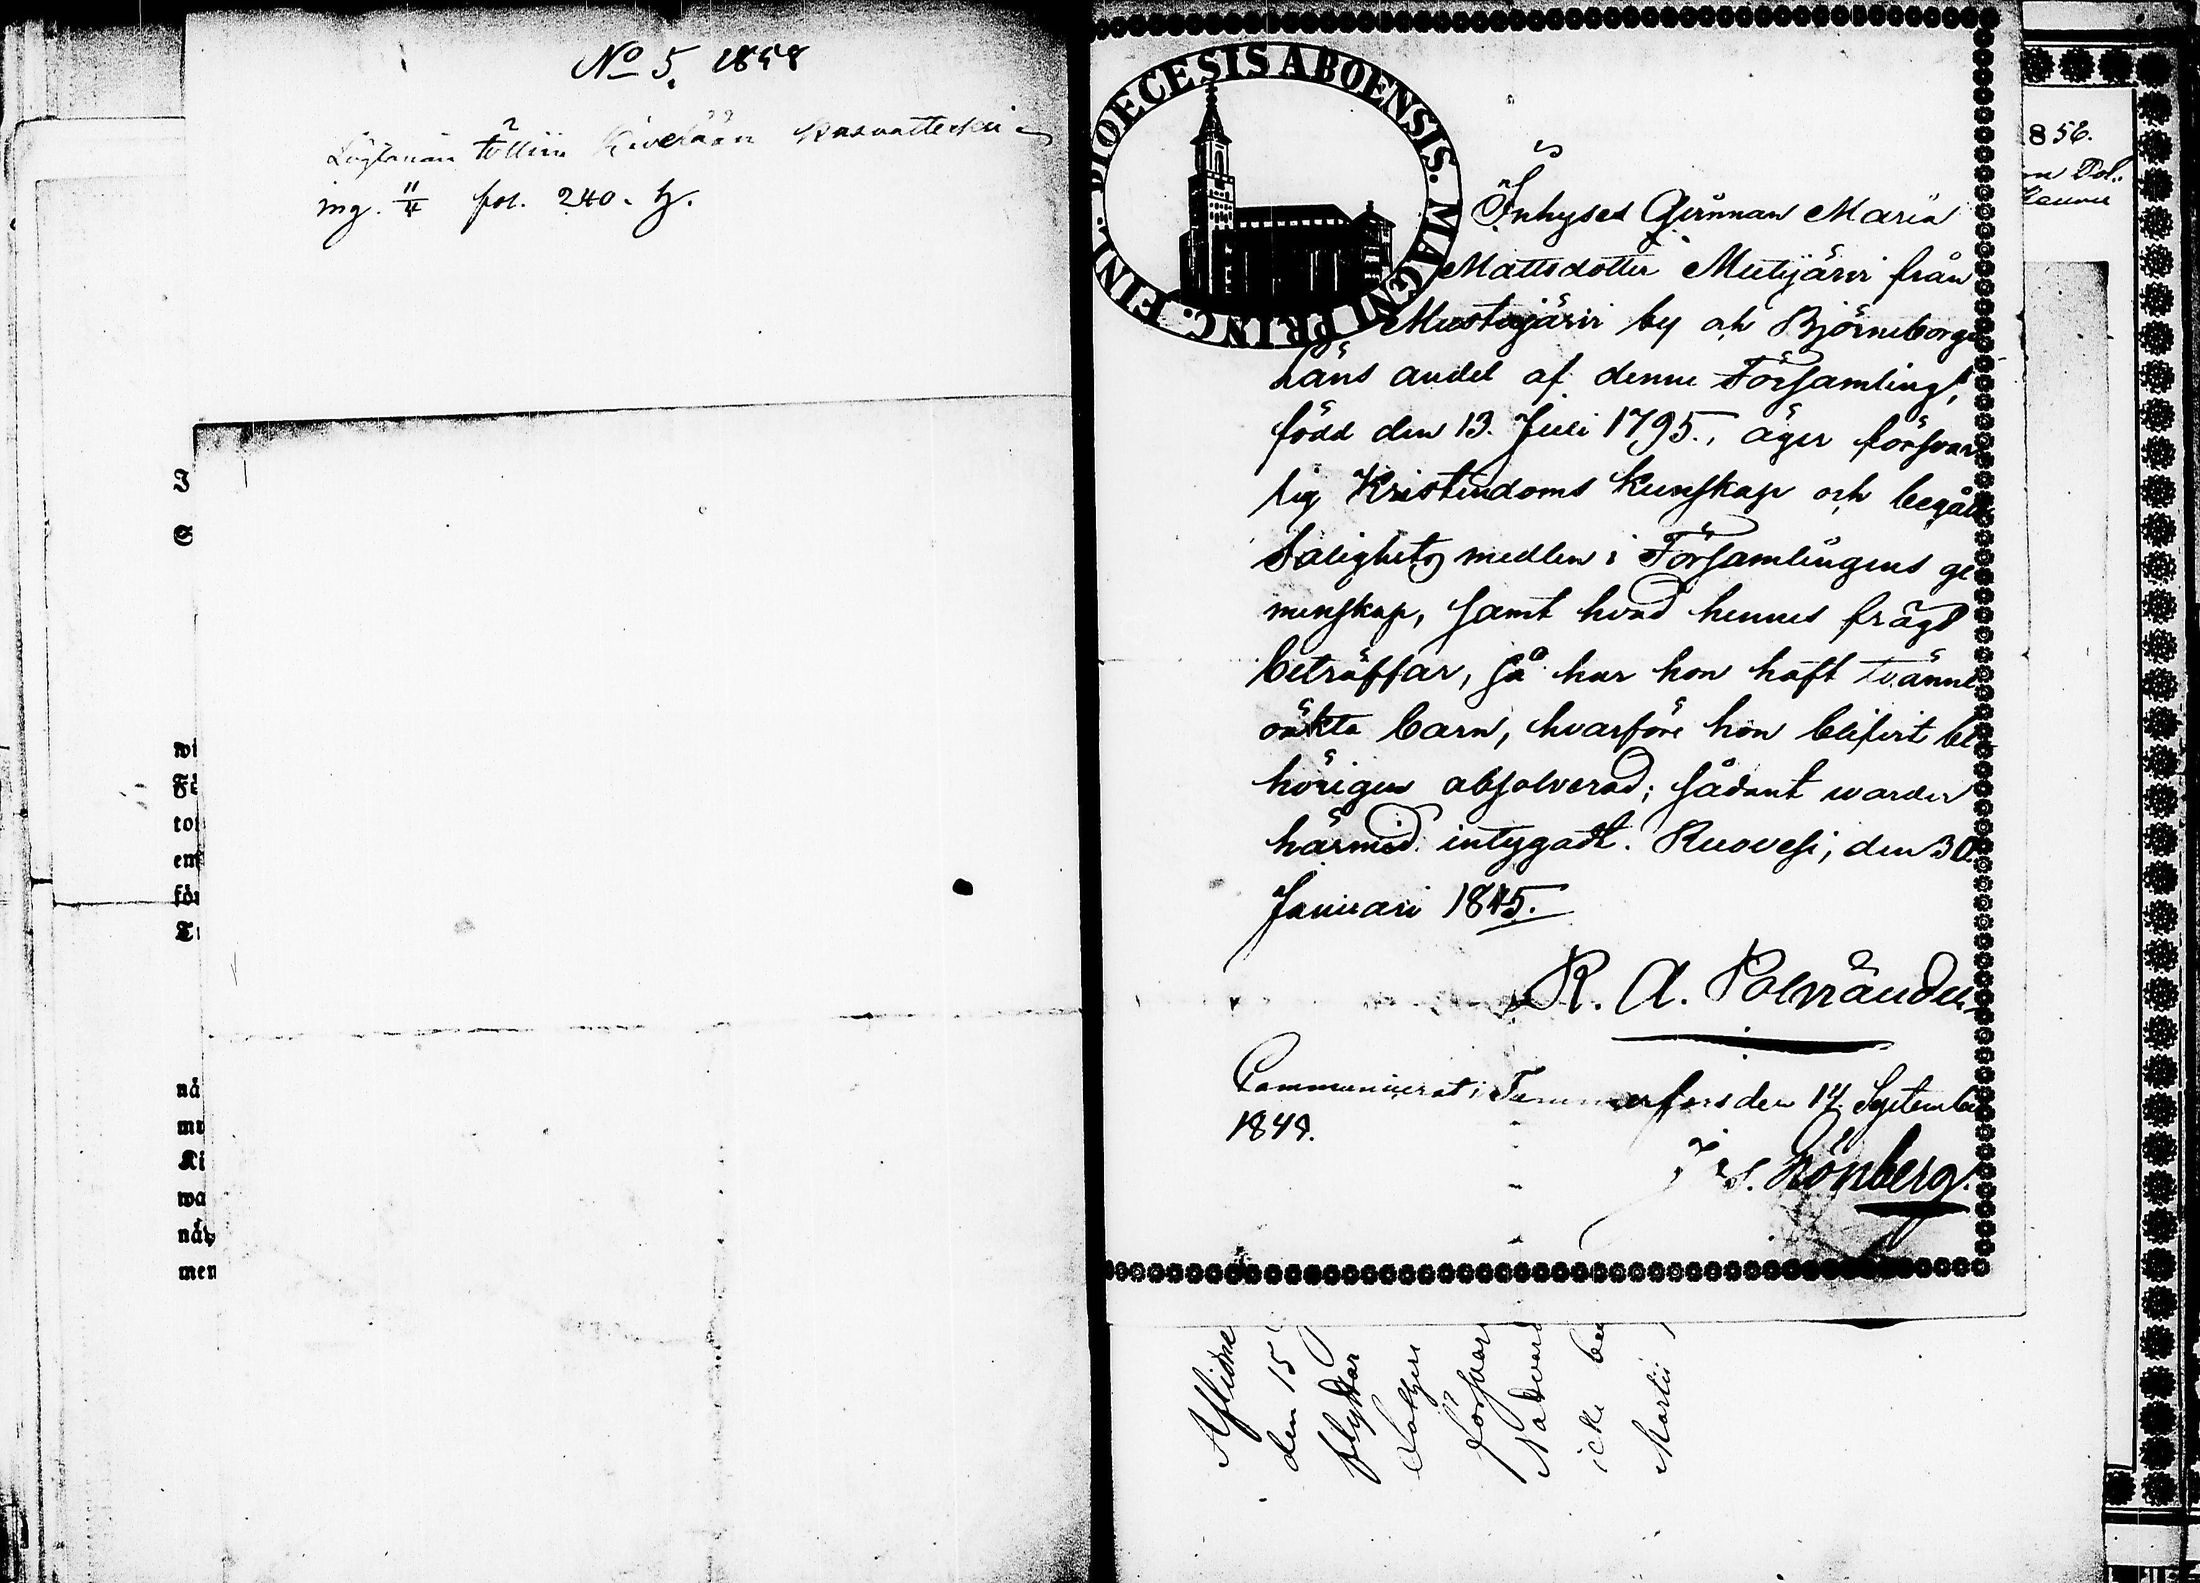 No 5. 1858
Löytänän töllin Kiverään
ing. 11/4 fol. 240. h.
I
S
wi
Få
to
em
för
T
nå
mu
Ki
wa
nåt
men
DIOECESIS ABOENSIS. MAGNI PRINC. FINL.
Inhyses Qvinnan Maria
Mattsdotter Mutijärvi från
Mustajärvi by och Björneborgs
läns andel af denne Församling,
född den 13. Juli 1795., äger försvar
lig Kristendoms Kunskap och begått
Salighets medlen i Församlingens ge
menskap, samt hvad hennes frägd
beträffar, så har hon haft tvänne
oäkta barn, hvarföre hon blifvit be
hörigen absolverad; sådant warder
härmed intygadt. Ruovesi, den 30.
Januari 1845.
R. A. Polviander
Communicerat i Tammerfors den 17. September
1848.
S. Lönberg.
Aflidne
den 15
flyttar
försvar
Nattvard
icke
Martii
856.